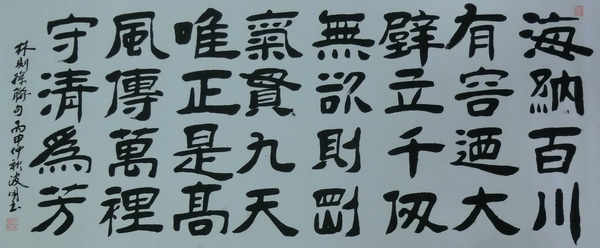 海納百川
有容迺大
壁立千仞
無欲則剛
氣貫九天
唯正是髙
風傳萬裡
守清爲芳
林則徐聯句丙申仲秋